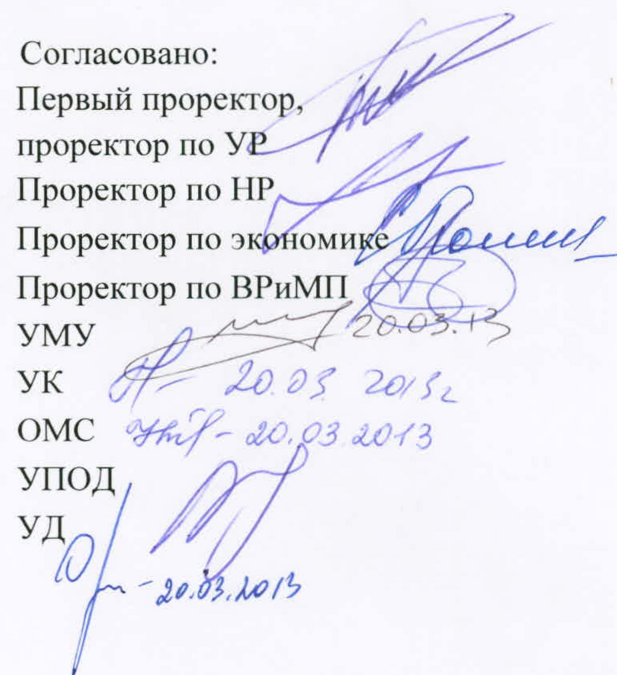 Согласовано:
Первый проректор,
проректор по УР
Проректор по НР
Проректор по экономике
Проректор по ВРиМП
УМУ 20.03.13
УК 20.03 2013г
ОМС - 20.03.2013
УПОД
УД
- 20.03.2013